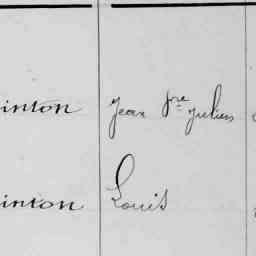 inton Jean Pre Julien
inton Louis